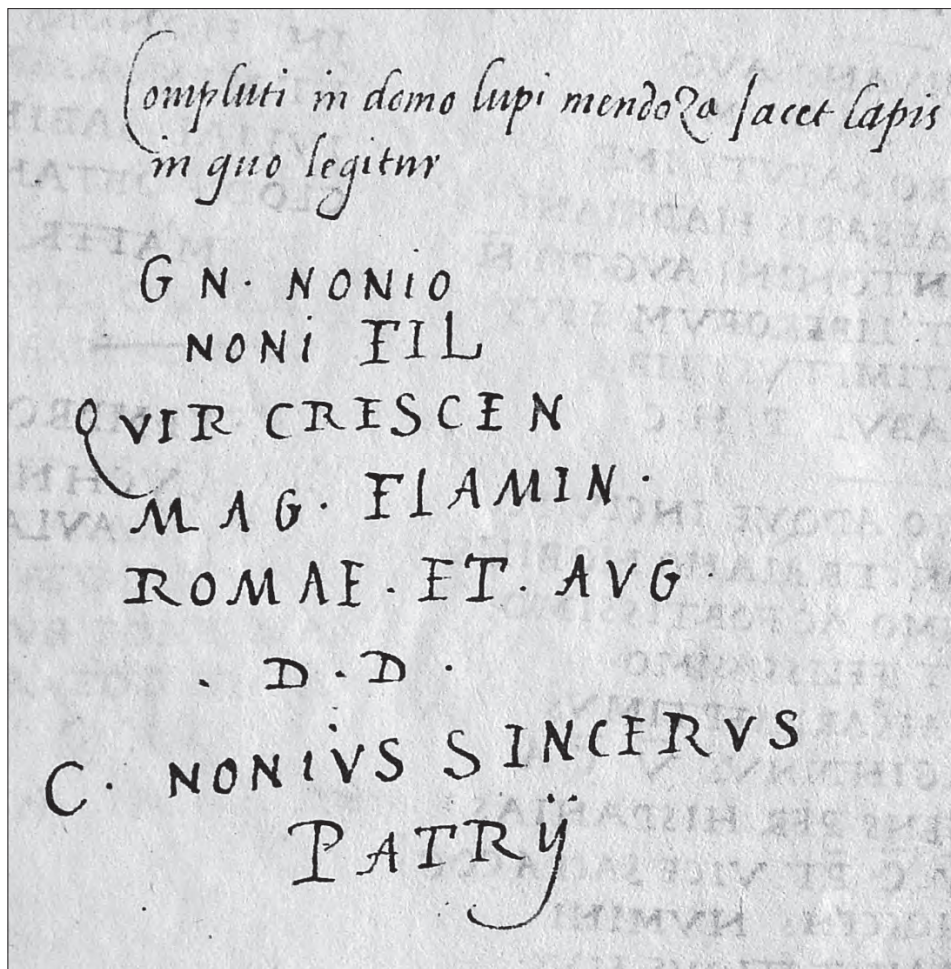 Compluti in domo lupi mendoza jacet lapis
in quo legitur
GN. NONIO
NONI FIL
QVIR CRESCEN
MAG. FLAMIN.
ROMAE. ET. AVG.
. D. D.
C. NONIVS SINCERVS
PATRIJ